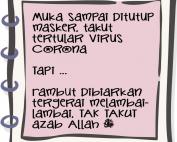 Muka sampai ditutup
masker, takut
tertular virus
corona
Tapi ...
rambut dibiarkan
tergerai melambai-
lambai, TAK TAKUT
azab Allah ﷻ